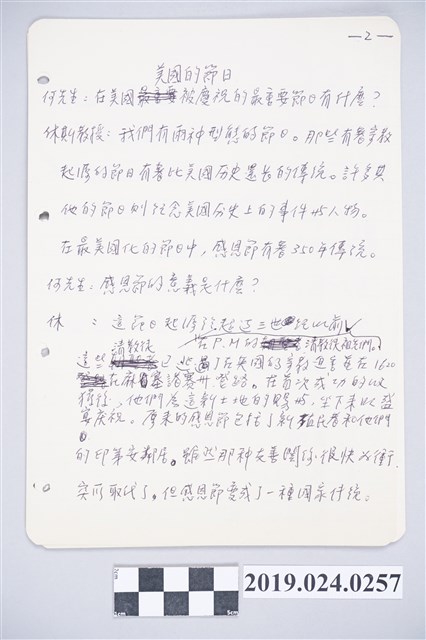 —2—
美國的節日
何先生：在美國被慶祝的最重要節日有什麼？
休斯教授：我們有兩种型態的節日。那些有著宗教
起源的節日有著比美國历史還長的傳統。許多其
他的節日則紀念美國历史上的事件与人物。
在最美國化的節日中，感恩節有著350年傳統。
何先生：感恩節的意義是什麼？
休：這節日起源於三世紀以前
在P.M的清教徒祖先們。
清教徒
這些已逃離了在英國的宗教迫害並在1620
在麻塞諸塞州登陸。在首次成功的收
獲後，他們為這新土地的賜与，坐下來以盛
宴慶祝。原來的感恩節包括了新殖民者和他們
的印第安鄰居。雖然那种友善関係很快為衝
突所取代了，但感恩節變成了一種國家传統。
2cm
5cm
2019.024.0257